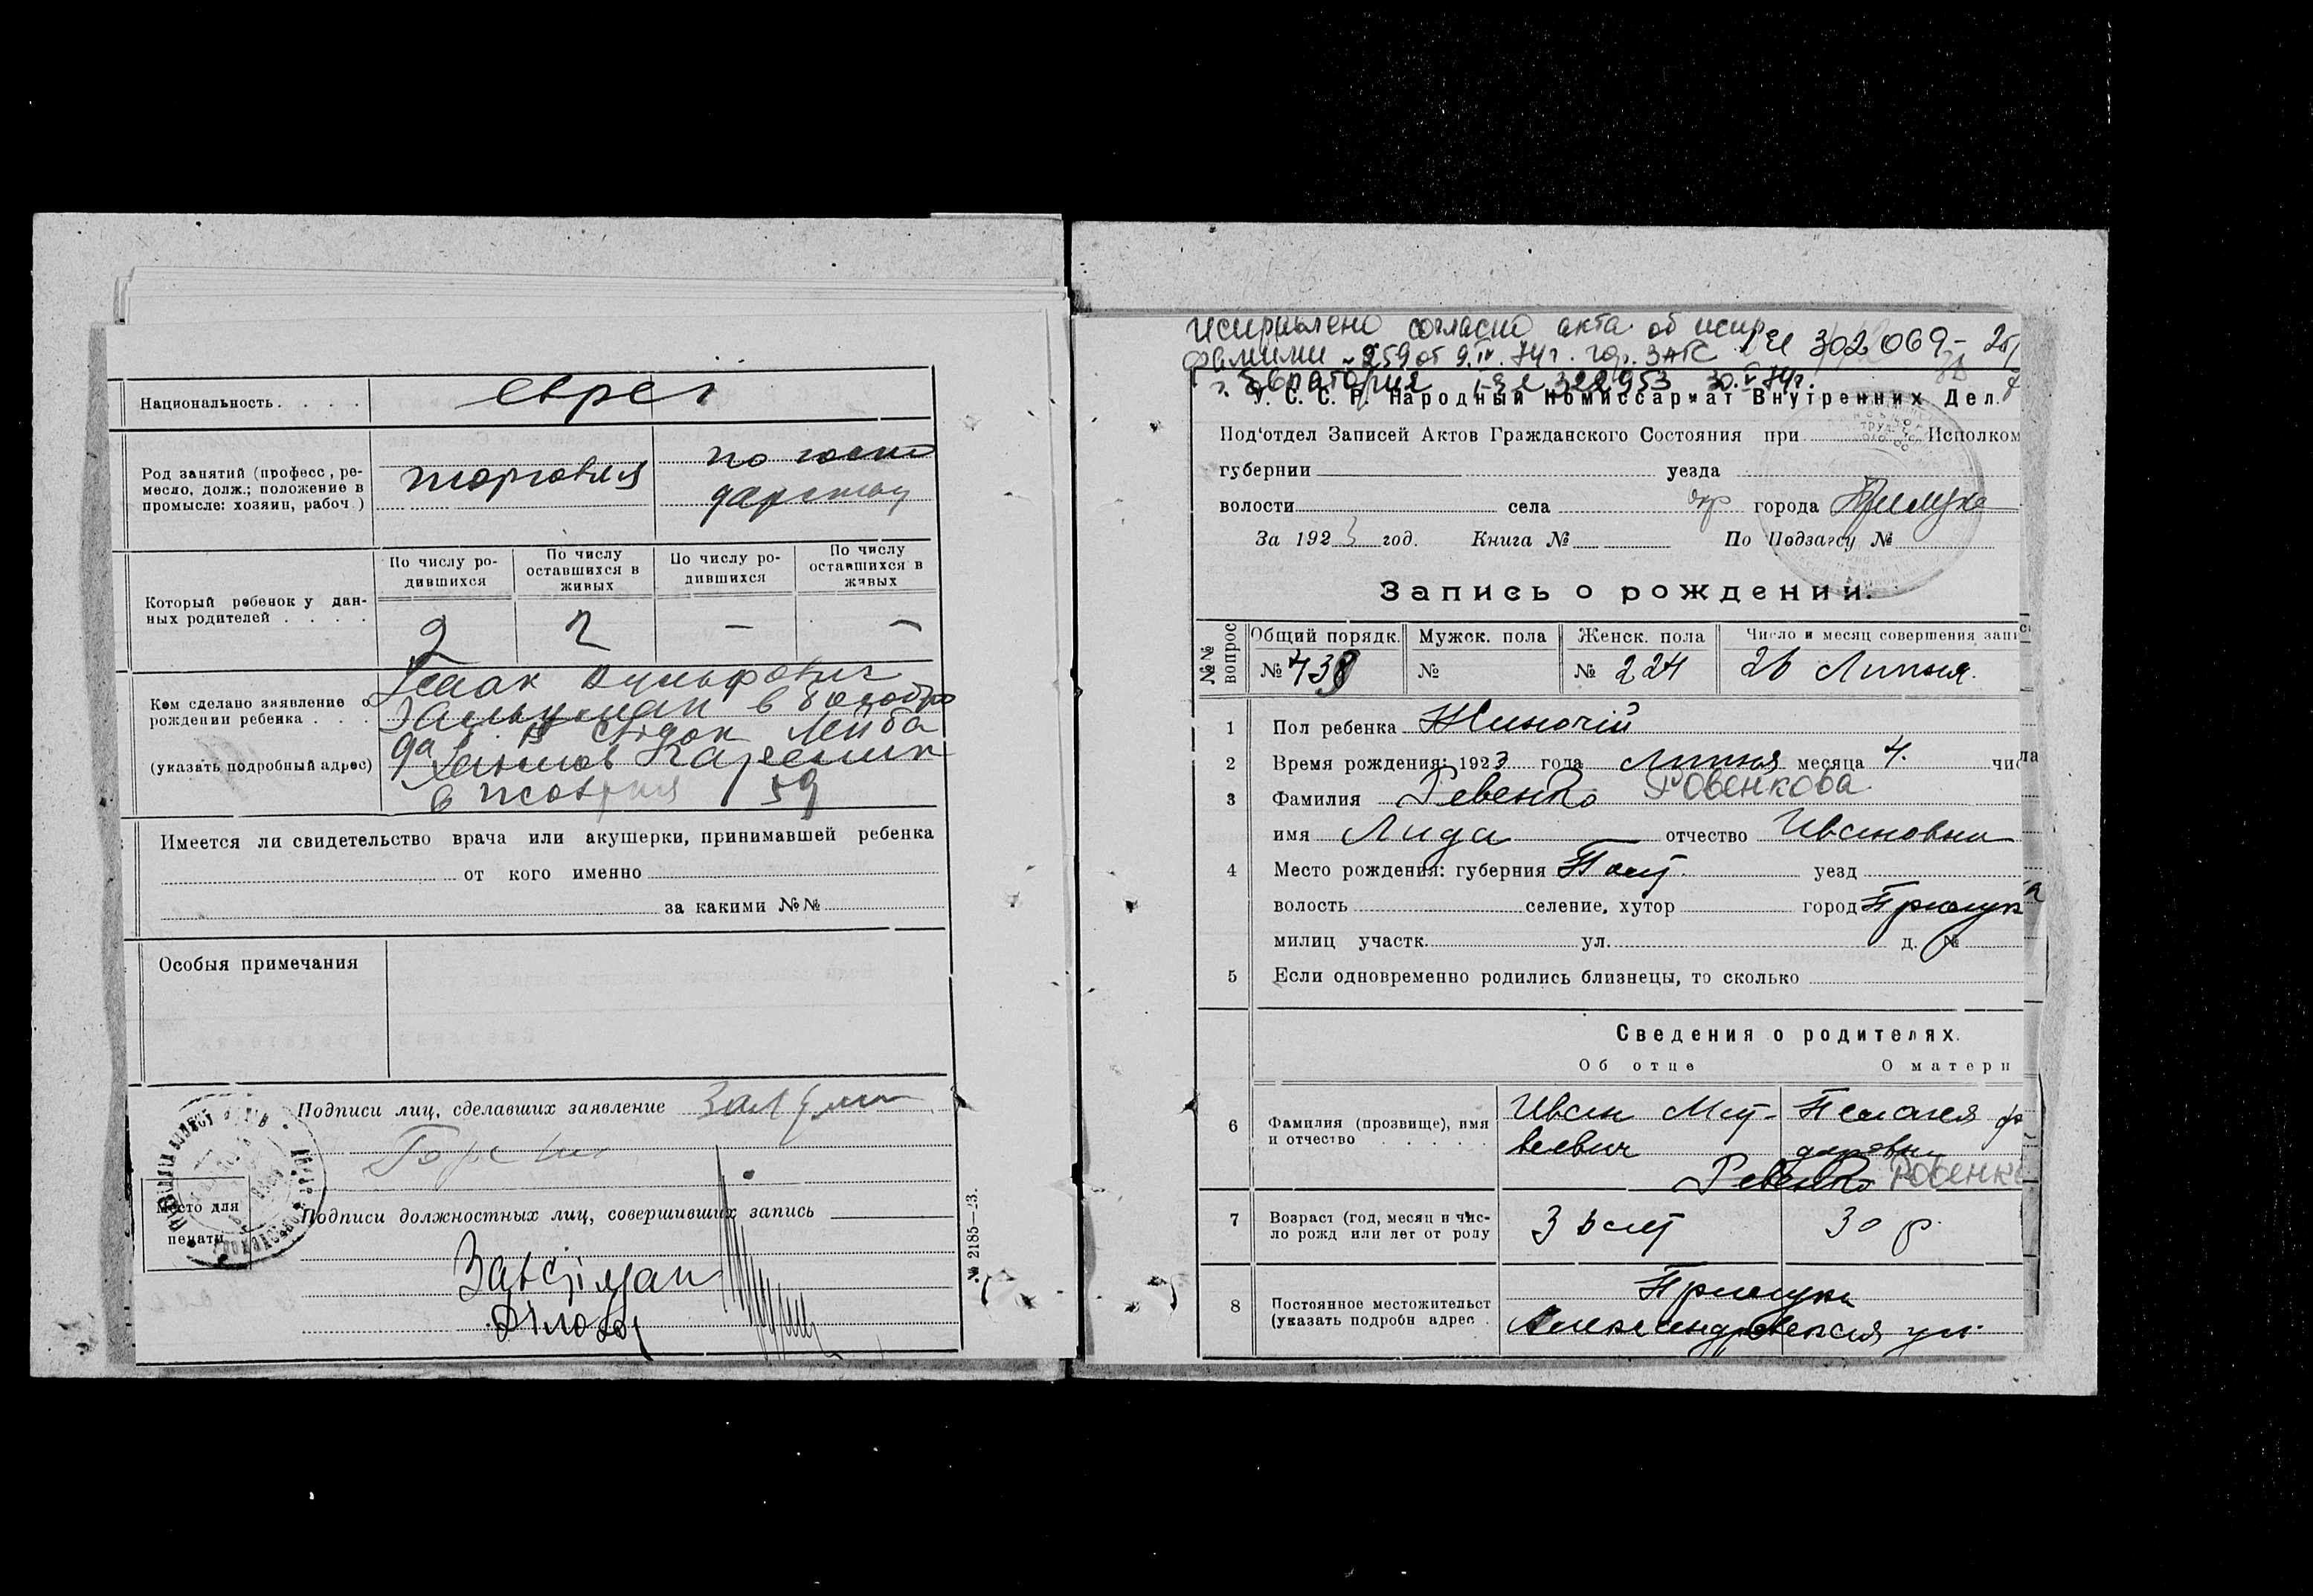 Национальность. . . . . еврей
Род занятий (професс, ре-
месло, долж.; положение в
промысле: хозяин, рабоч )
торговля
по госпо
дарству
По числу ро-
дившихся
По числу
оставшихся в
живых
По числу ро-
дившихся
По числу
оставшихся в
живых
Который ребенок у дан-
ных родителей . . . .
2 2 — —
Кем сделано заявление о
рождении ребенка . . .
(указать подробный адрес)
Исаак Вульфович
Зальцман в
Лейба
59
Имеется ли свидетельство врача или акушерки, принимавшей ребенка
от кого именно
за какими №№
Особыя примечания
Подписи лиц, сделавших заявление
Место для
печати
Подписи должностных лиц, совершивших запись
№ 2185—23.
Исправлено согласно акта об испр
фамилии №259 от 9.IV.74г. гор. ЗАГС
302069-
г. Евпатория 322953 30.V.74г.
У. С. С. Р. Народный Комиссариат Внутренних Дел.
Под'отдел Записей Актов Гражданского Состояния при Исполком
губернии уезда
волости села окр города Прилуки
За 1923 год. Книга № По Подзагсу №
Запись о рождении.
№№ вопрос
Общий порядк. Мужск. пола Женск. пола Число и месяц совершения запис
№ 438 № № 224 26 Липня.
1 Пол ребенка Жиночій
2 Время рождения: 1923 года Липня месяца 4. числа
3 Фамилия Ревенко Ровенкова
имя Лида отчество Ивановна
4 Место рождения: губерния Полт. уезд
волость селение, хутор город Прилука
милиц участк. ул. д. №
5 Если одновременно родились близнецы, то сколько
Сведения о родителях.
Об отце О матери
6 Фамилия (прозвище), имя
и отчество . . . . .
Иван Мат-
веевич
Пелагея Фе
доровна
Ревенко Ровенко
7 Возраст (год, месяц и чис-
ло рожд или лет от роду
36 лет 30 р.
8 Постоянное местожительст
(указать подробн адрес .
Прилуки
Александровская ул.